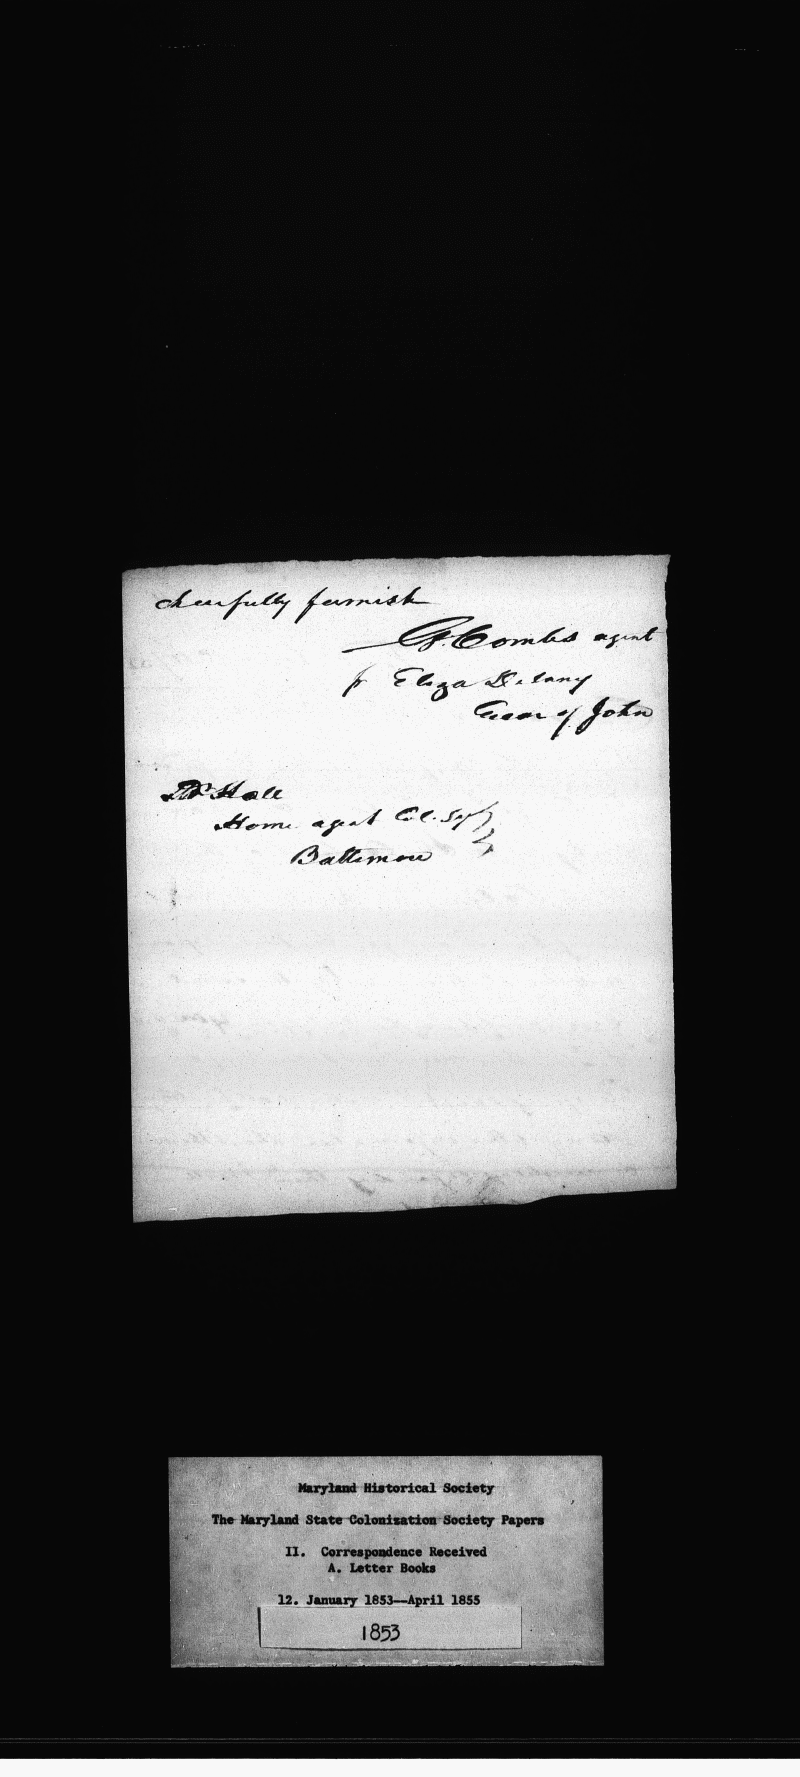 cheerfully furnish
G. Combs agent
for Eliza Delany
of John
Dr Hall
Home agent Col. Socy
Baltimore
Maryland Historical Society
The Maryland State Colonization Society Papers
II. Correspondence Received
A. Letter Books
12. January 1853--April 1855
1853